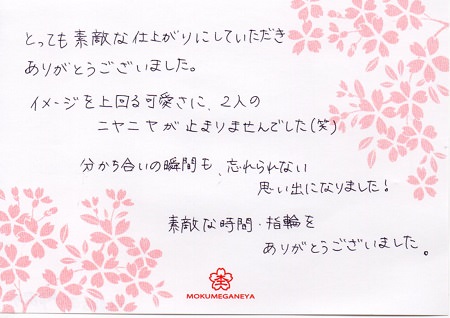 とっても素敵な仕上がりにしていただき
ありがとうございました。
イメージを上回る可愛さに、2人の
ニヤニヤが止まりませんでした(笑)
分かち合いの瞬間も、忘れられない
思い出になりました!
素敵な時間・指輪を
ありがとうございました。
MOKUMEGANEYA